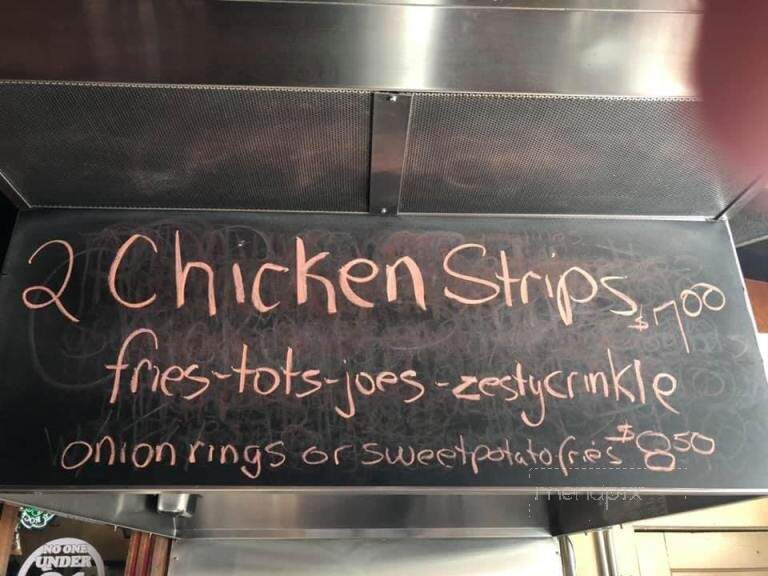 2 Chicken Strips $7.00
fries-tots-joes-zestycrinkle
onion rings or sweetpotato fries $8.50
menupix
NO ONE
UNDER